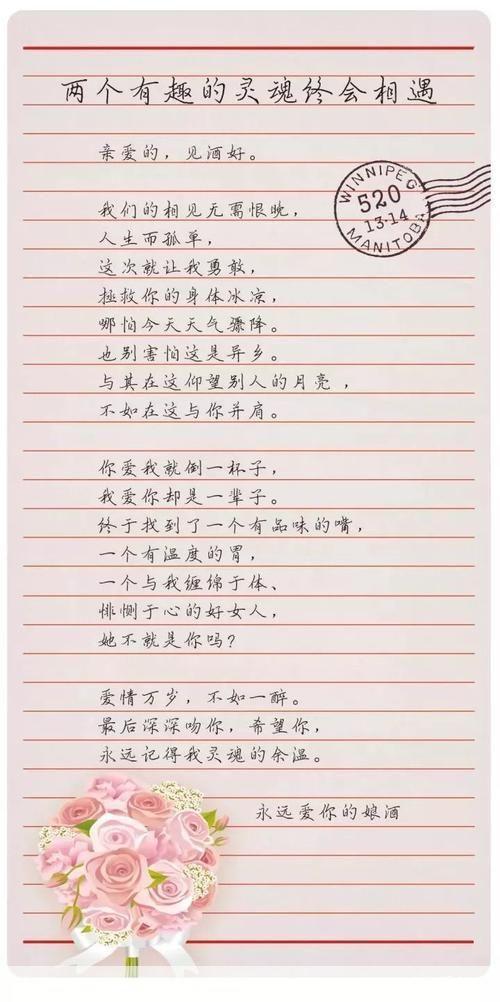 两个有趣的灵魂终会相遇
亲爱的，见酒好。
WINNIPEG
520
13·14
MANITOBA
我们的相见无需恨晚，
人生而孤单，
这次就让我勇敢，
拯救你的身体冰凉，
哪怕今天天气骤降。
也别害怕这是异乡。
与其在这仰望别人的月亮，
不如在这与你并肩。
你爱我就倒一杯子，
我爱你却是一辈子。
终于找到了一个有品味的嘴，
一个有温度的胃，
一个与我缠绵于体、
悱恻于心的好女人，
她不就是你吗？
爱情万岁，不如一醉。
最后深深吻你，希望你，
永远记得我灵魂的余温。
永远爱你的娘酒